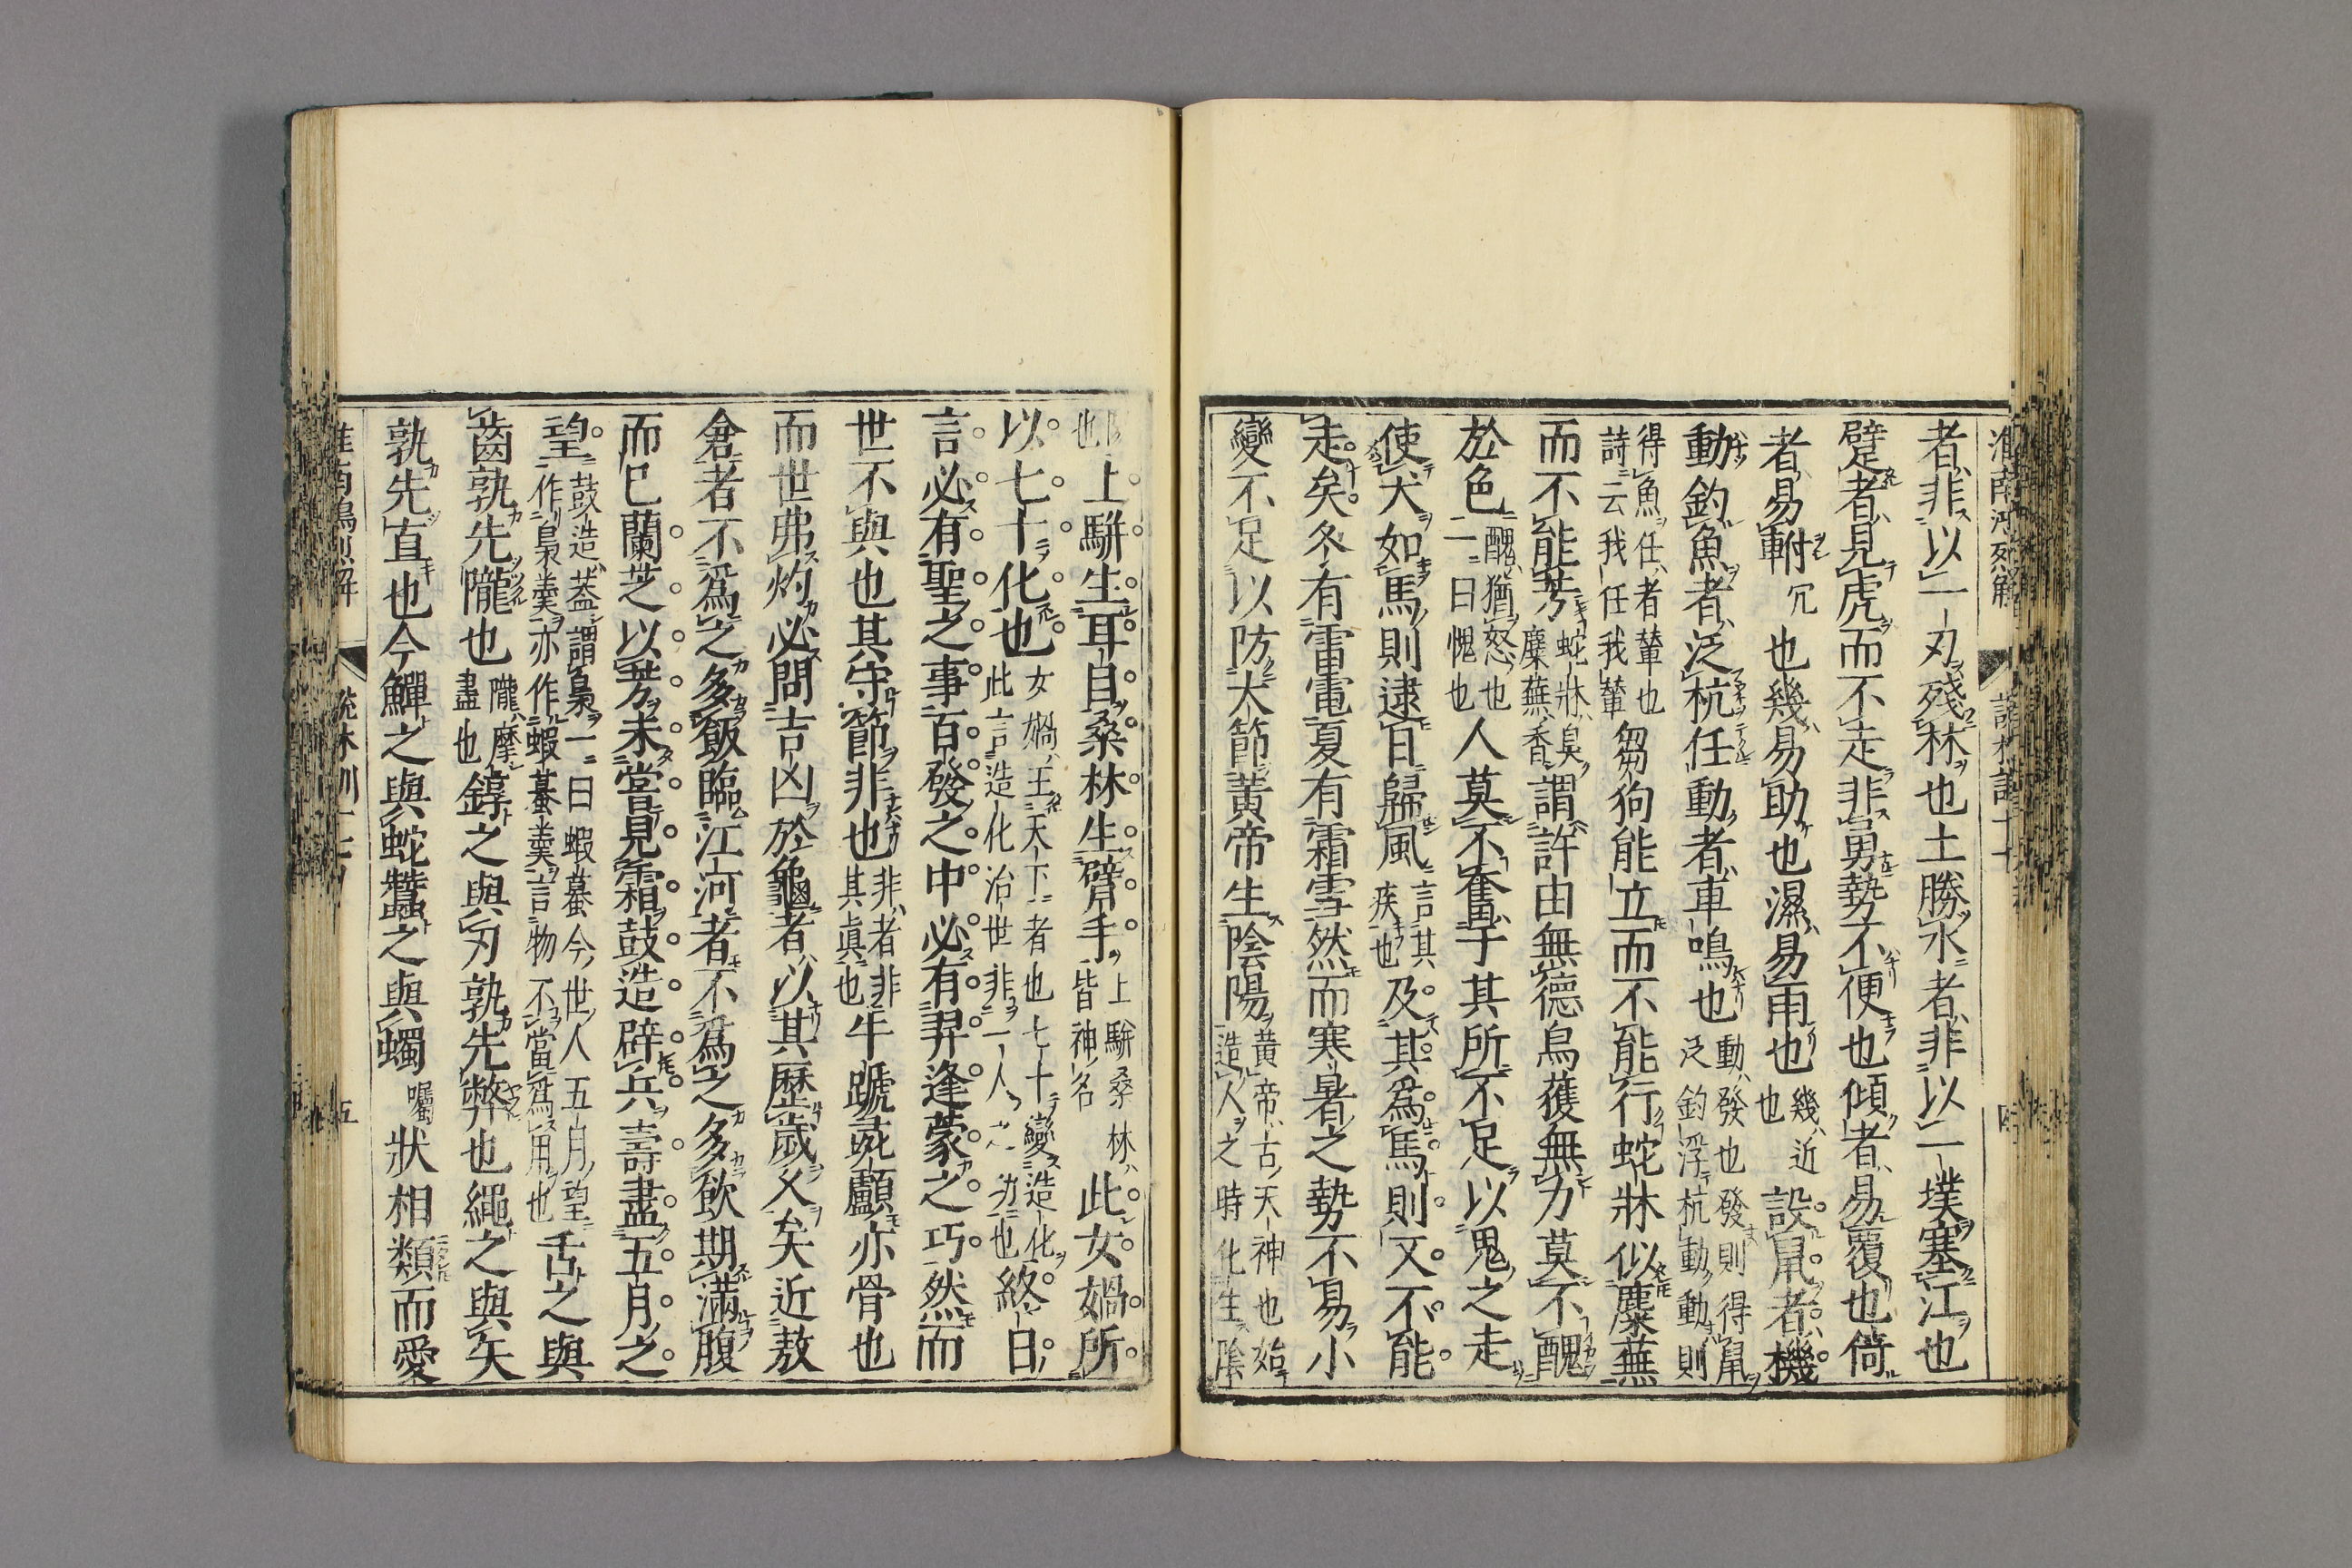 者非以一刃殘林也土勝水者非以一墣塞江也
躄者見虎而不走非勇勢不便也傾者易覆也倚
者易軵冗也幾易助也濕易雨也幾近也設鼠者機
動釣魚者泛杭任動者車鳴也動發也發則得鼠泛釣浮杭動動則
得魚任者輦也詩云我任我輦芻狗能立而不能行蛇牀似麋蕪
而不能芳蛇牀臭麋蕪香謂許由無德烏獲無力莫不醜
於色醜猶怒也一曰愧也人莫不奮于其所不足以兎之走
使犬如馬則逮日歸風言其疾也及其爲馬則又不能
走矣冬有雷電夏有霜雪然而寒暑之勢不易小
變不足以防大節黃帝生陰陽黃帝古天神也始造人之時化生陰
也上駢生耳目桑林生臂手上駢桑林皆神名此女媧所
以七十化也女媧王天下者也七十變造化此言造化治世非一人之功也終日
言必有聖之事百發之中必有羿逢蒙之巧然而
世不與也其守節非也非者非其眞也牛蹏彘顱亦骨也
而世弗灼必問吉凶於龜者以其歷歲久矣近敖
倉者不爲之多飯臨江河者不爲之多飲期滿腹
而已蘭芝以芳未嘗見霜鼓造辟兵壽盡五月之
望鼓造蓋謂梟一曰蝦蟇今世人五月望作梟羹亦作蝦蟇羹言物不當爲用也舌之與
齒孰先隴也隴摩盡也錞之與刃孰先弊也繩之與矢
孰先直也今鱓之與蛇蠶之與蠋囑狀相類而愛
五